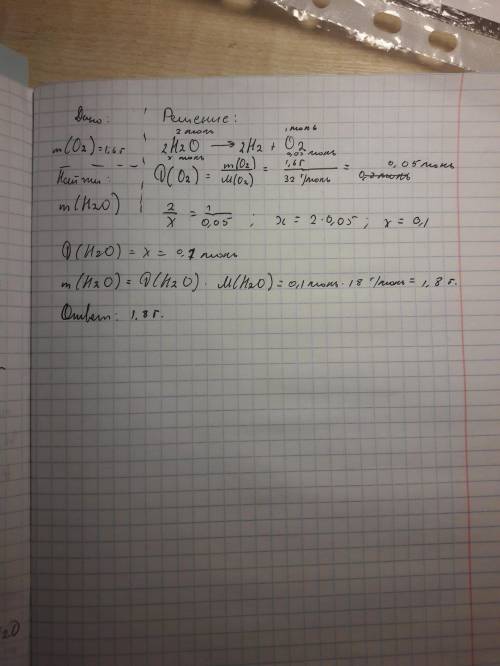 Дано: Решение:
2 моль 1 моль
m(O2)=1,6г 2H2O → 2H2 + O2
x моль 0,05 моль
Найти: ν(O2) = m(O2)/M(O2) = 1,6г/32 г/моль = 0,05 моль
m(H2O) 2/x = 1/0,05 ; x = 2·0,05 ; x = 0,1
ν(H2O) = x = 0,1 моль
m(H2O) = ν(H2O) · M(H2O) = 0,1 моль · 18 г/моль = 1,8 г.
Ответ: 1,8 г.